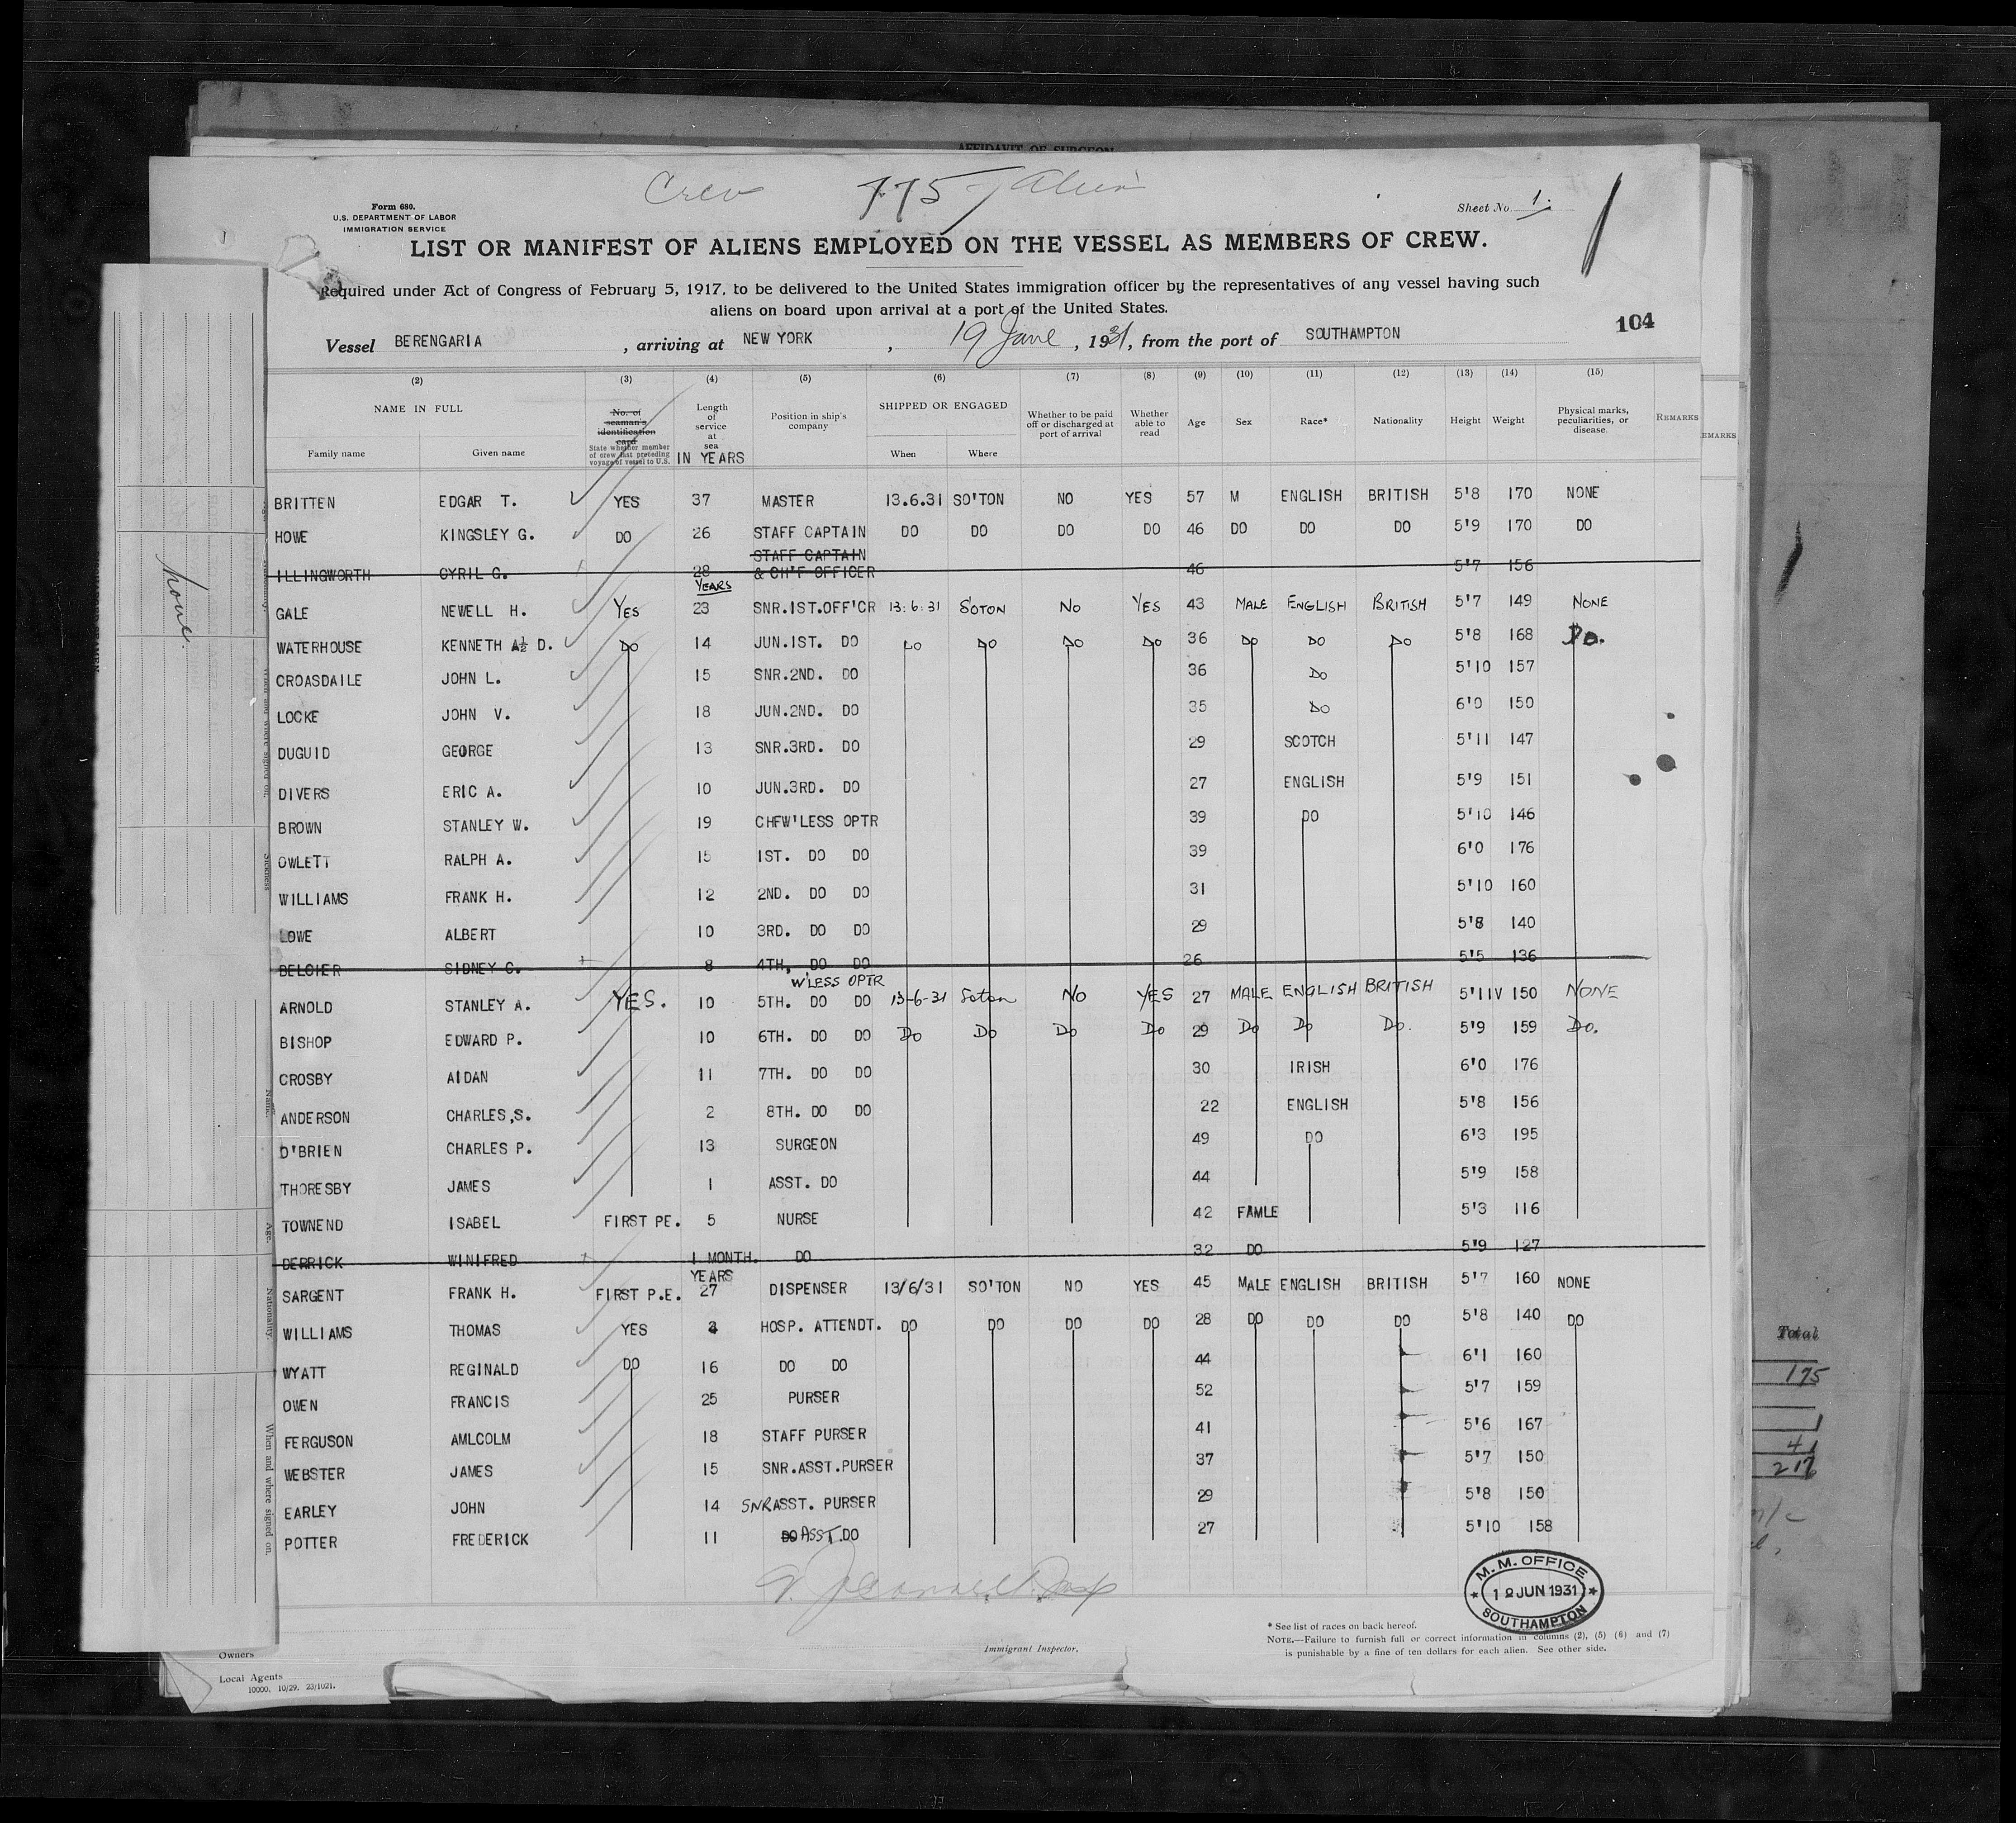 AFFIDAVIT OF SURGEON
Crew 775 Alien
Form 680.
U.S. DEPARTMENT OF LABOR
IMMIGRATION SERVICE
Sheet No. 1.
LIST OR MANIFEST OF ALIENS EMPLOYED ON THE VESSEL AS MEMBERS OF CREW.
Required under Act of Congress of February 5, 1917, to be delivered to the United States immigration officer by the representatives of any vessel having such
aliens on board upon arrival at a port of the United States.
104
Vessel BERENGARIA, arriving at NEW YORK, 19 June, 1931, from the port of SOUTHAMPTON
(2) (3) (4) (5) (6) (7) (8) (9) (10) (11) (12) (13) (14) (15)
NAME IN FULL
Family name Given name
No. of seaman's identification card
State whether member of crew last preceding voyage of vessel to U.S.
Length of service at sea
IN YEARS
Position in ship's company
SHIPPED OR ENGAGED
When Where
Whether to be paid off or discharged at port of arrival
Whether able to read
Age Sex Race* Nationality Height Weight
Physical marks, peculiarities, or disease
REMARKS
EMARKS
BRITTEN EDGAR T. YES 37 MASTER 13.6.31 SO'TON NO YES 57 M ENGLISH BRITISH 5'8 170 NONE
HOWE KINGSLEY G. DO 26 STAFF CAPTAIN DO DO DO DO 46 DO DO DO 5'9 170 DO
STAFF CAPTAIN
ILLINGWORTH CYRIL G. 28 & CH'F OFFICER 46 5'7 156
YEARS
GALE NEWELL H. YES 23 SNR.1ST.OFF'CR 13:6:31 S'OTON NO YES 43 MALE ENGLISH BRITISH 5'7 149 NONE
WATERHOUSE KENNETH A½ D. DO 14 JUN.1ST. DO DO DO DO DO 36 DO DO DO 5'8 168 DO.
CROASDAILE JOHN L. 15 SNR.2ND. DO 36 DO 5'10 157
LOCKE JOHN V. 18 JUN.2ND. DO 35 DO 6'0 150
DUGUID GEORGE 13 SNR.3RD. DO 29 SCOTCH 5'11 147
DIVERS ERIC A. 10 JUN.3RD. DO 27 ENGLISH 5'9 151
BROWN STANLEY W. 19 CHFW'LESS OPTR 39 DO 5'10 146
OWLETT RALPH A. 15 1ST. DO DO 39 6'0 176
WILLIAMS FRANK H. 12 2ND. DO DO 31 5'10 160
LOWE ALBERT 10 3RD. DO DO 29 5'8 140
BELCIER SIDNEY C. 8 4TH, DO DO 26 5'5 136
W'LESS OPTR
ARNOLD STANLEY A. YES. 10 5TH. DO DO 13-6-31 Soton NO YES 27 MALE ENGLISH BRITISH 5'11V 150 NONE
BISHOP EDWARD P. 10 6TH. DO DO DO DO DO DO 29 DO DO DO. 5'9 159 DO.
CROSBY AIDAN 11 7TH. DO DO 30 IRISH 6'0 176
ANDERSON CHARLES,S. 2 8TH. DO DO 22 ENGLISH 5'8 156
O'BRIEN CHARLES P. 13 SURGEON 49 DO 6'3 195
THORESBY JAMES 1 ASST. DO 44 5'9 158
TOWNEND ISABEL FIRST PE. 5 NURSE 42 FAMLE 5'3 116
DERRICK WINIFRED 1 MONTH. DO 32 DO 5'9 127
YEARS
SARGENT FRANK H. FIRST P.E. 27 DISPENSER 13/6/31 SO'TON NO YES 45 MALE ENGLISH BRITISH 5'7 160 NONE
WILLIAMS THOMAS YES HOSP. ATTENDT. DO DO DO DO 28 DO DO DO 5'8 140 DO
WYATT REGINALD DO 16 DO DO 44 6'1 160
OWEN FRANCIS 25 PURSER 52 5'7 159
FERGUSON AMLCOLM 18 STAFF PURSER 41 5'6 167
WEBSTER JAMES 15 SNR.ASST.PURSER 37 5'7 150
EARLEY JOHN 14 SNRASST. PURSER 29 5'8 150
POTTER FREDERICK 11 DO ASST.DO 27 5'10 158
M. M. OFFICE
12 JUN 1931
SOUTHAMPTON
Immigrant Inspector.
* See list of races on back hereof.
NOTE.—Failure to furnish full or correct information in columns (2), (5) (6) and (7)
is punishable by a fine of ten dollars for each alien. See other side.
Owners
Local Agents
10000. 10/29. 23/1021.
When and where signed on.
Sickness
Name.
Age.
Nationality.
When and where signed on.
Total
175
1
41
217